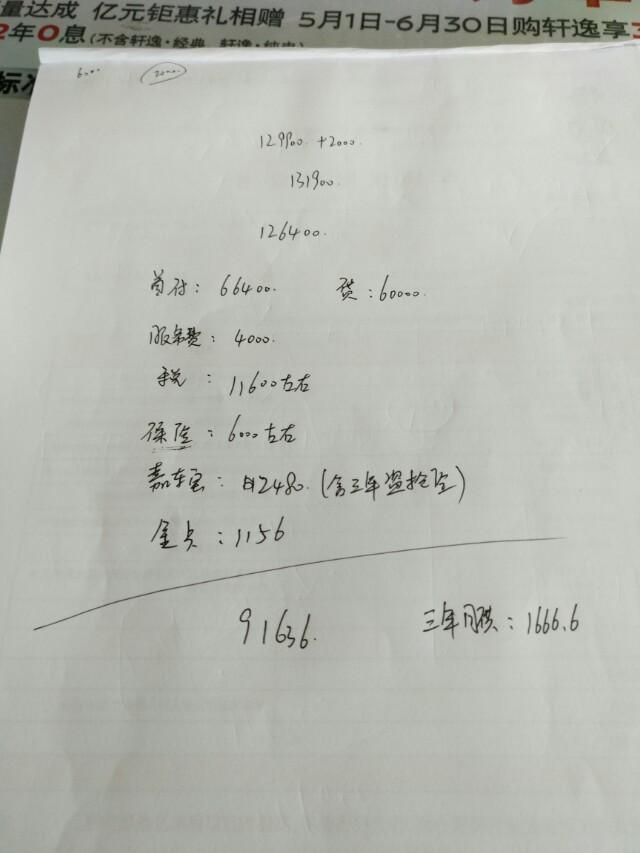 量达成 亿元钜惠礼相赠 5月1日-6月30日购轩逸享
2年0息(不含轩逸·经典
标
6000 2000
129900. +2000.
131900.
126400.
首付: 66400. 贷:60000.
服务费: 4000.
税: 11600左右
保险: 6000左右
嘉车宝: 2480. (含三年盗抢险)
金点:1156
91636. 三年月供:1666.6